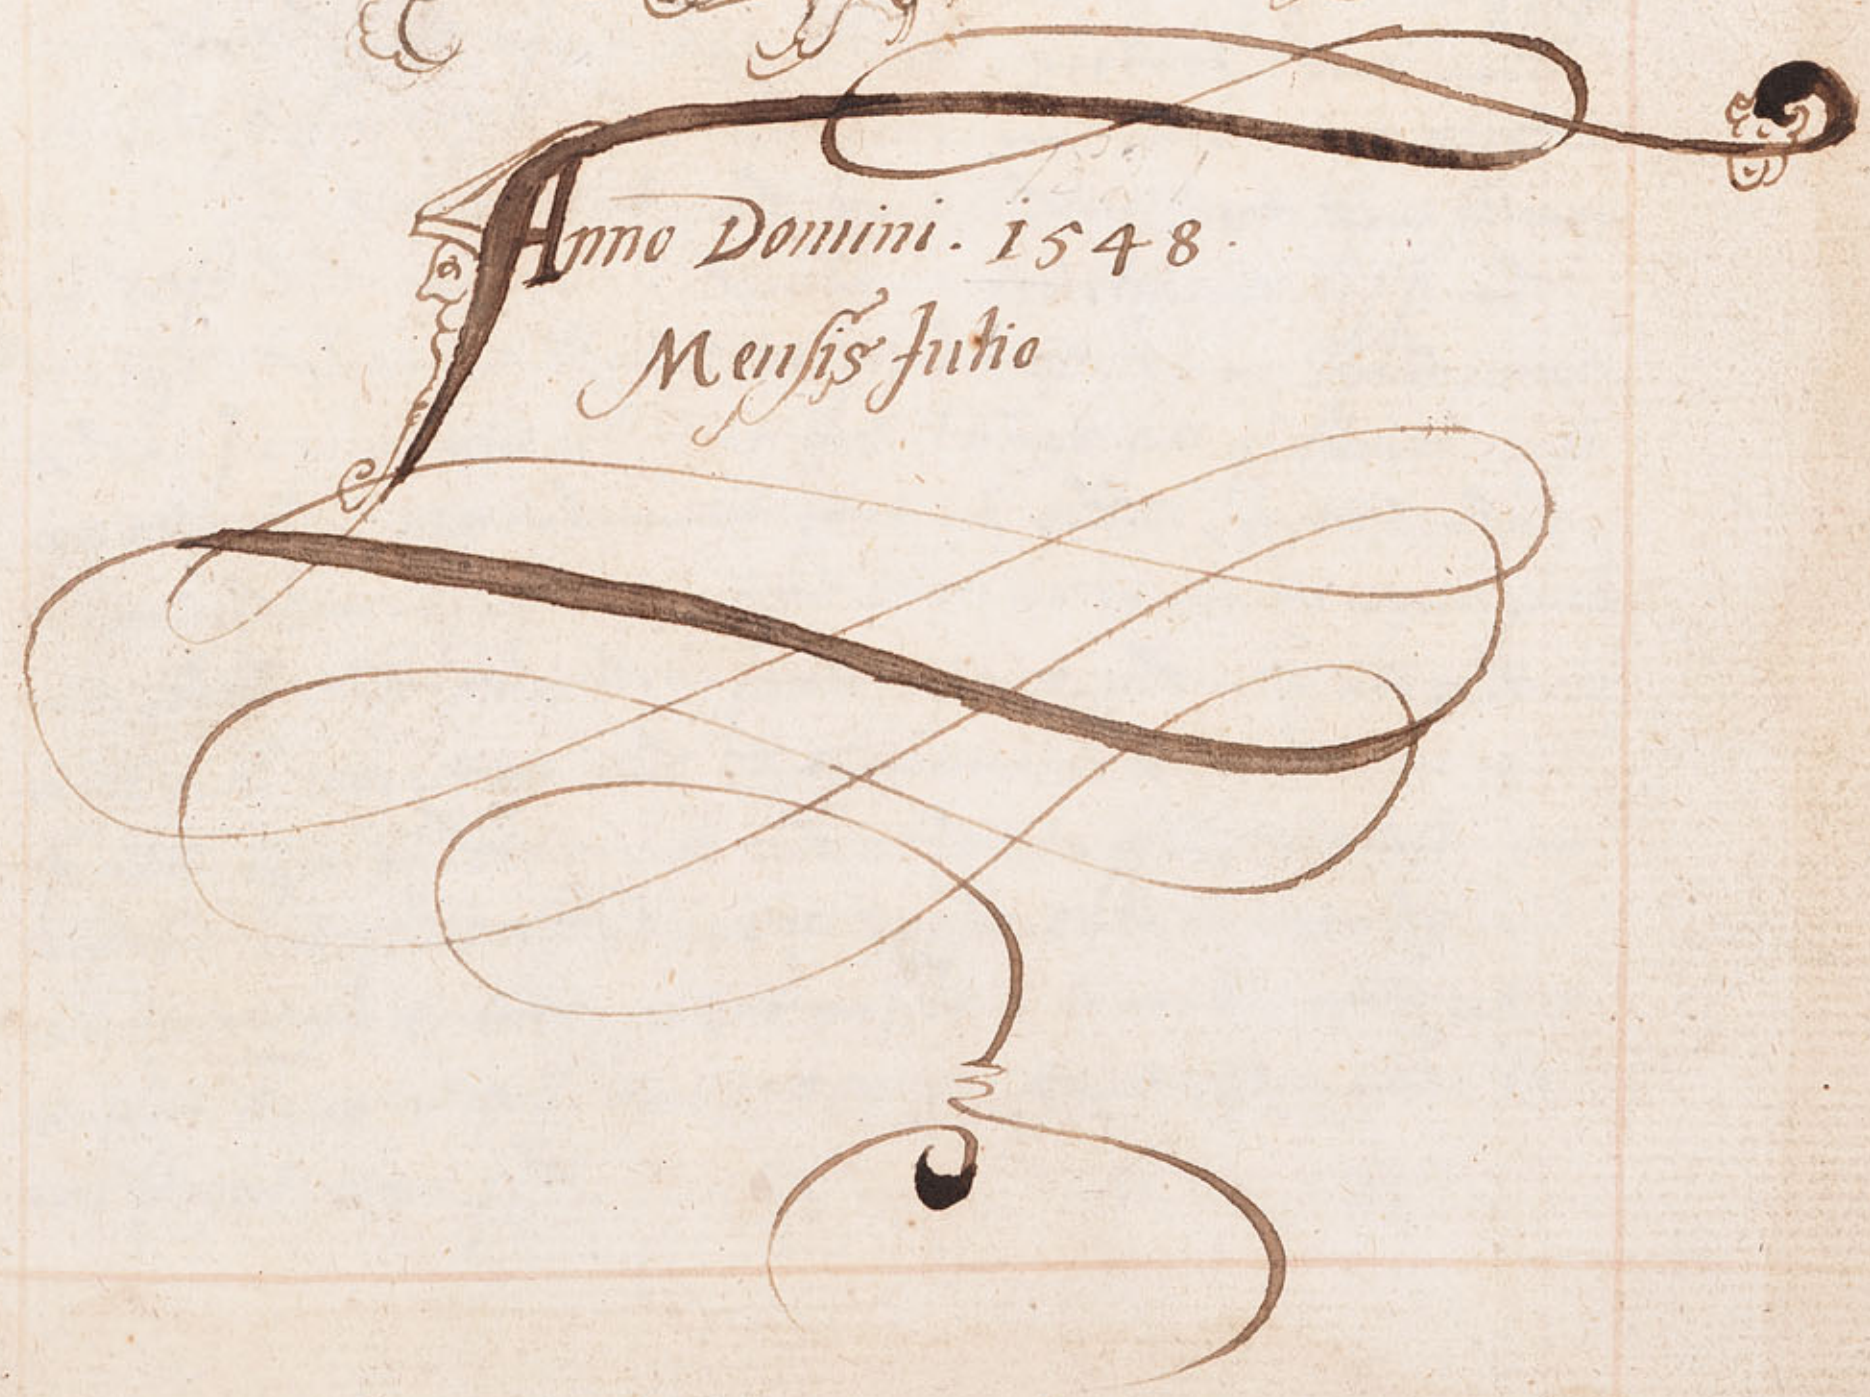 Anno Domini. 1548.
Mensis Julio